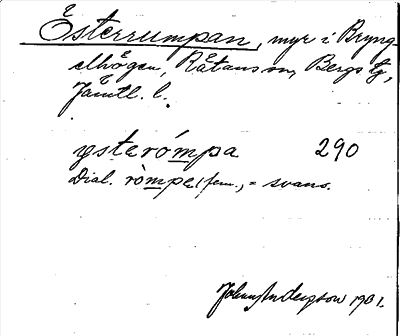 Österrumpan, myr i Bryng-
elhögen, Rätans sn, Bergs tg,
Jämtl. l.
ysterómpa 290
Dial. ròmpe, fem., = svans.
Johnny Andersson 1931.